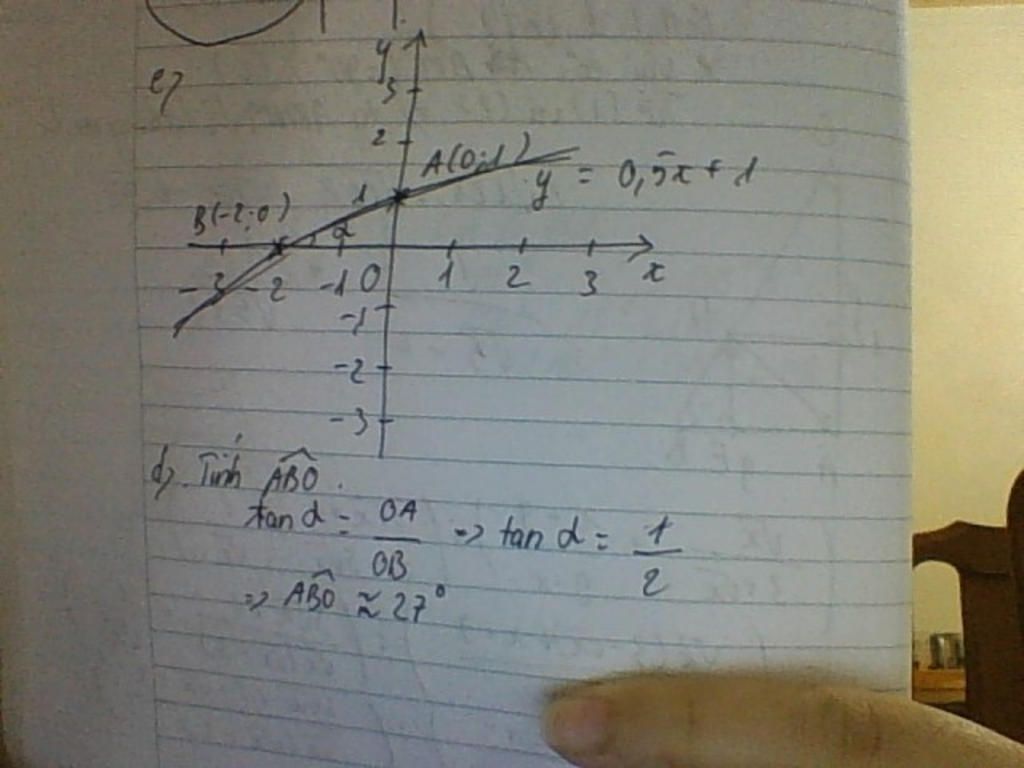 e)
y
3
2
A(0;1)
y = 0,5x + 1
1
B(-2;0)
α
-3 -2 -1 O 1 2 3 x
-1
-2
-3
d) Tính ABO.
tan α = OA/OB => tan α = 1/2
=> ABO ≈ 27°